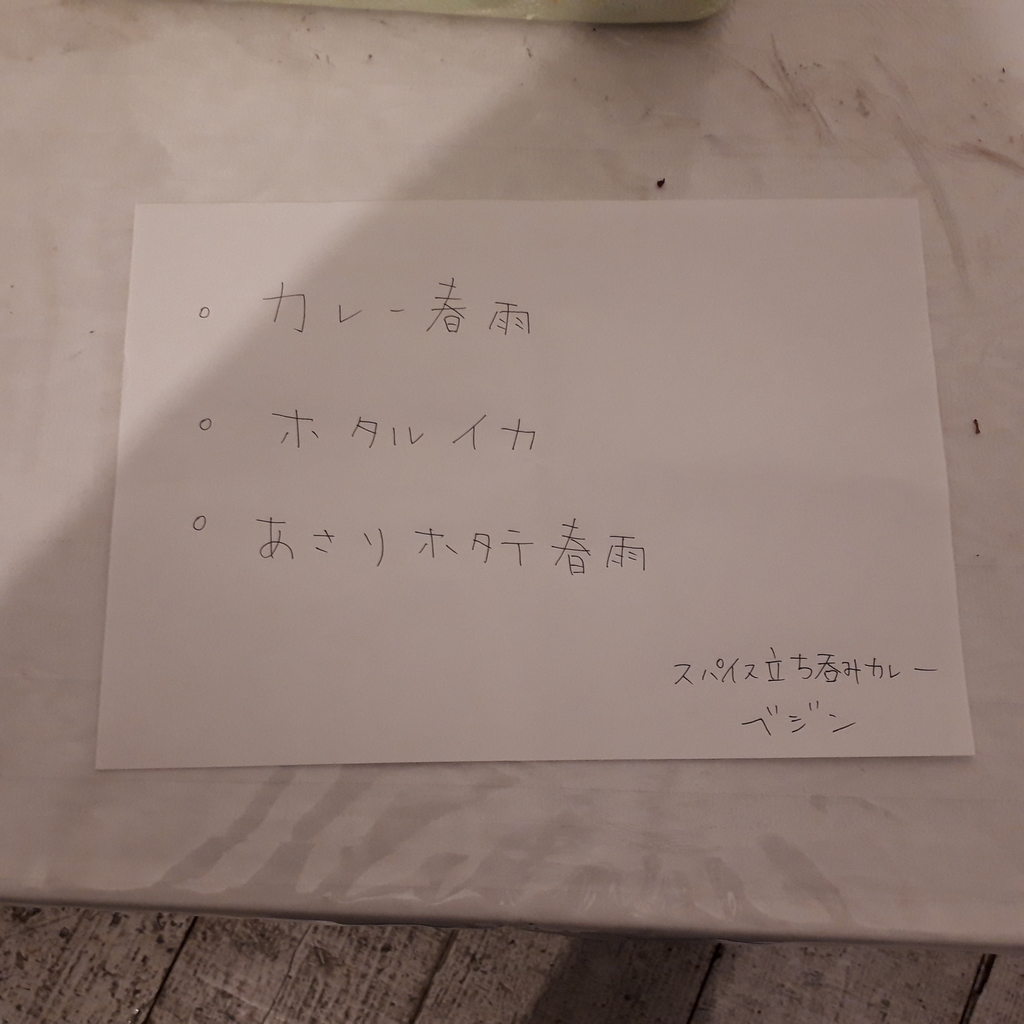 ○ カレー春雨
○ ホタルイカ
○ あさりホタテ春雨
スパイス立ち呑みカレー
ベジン